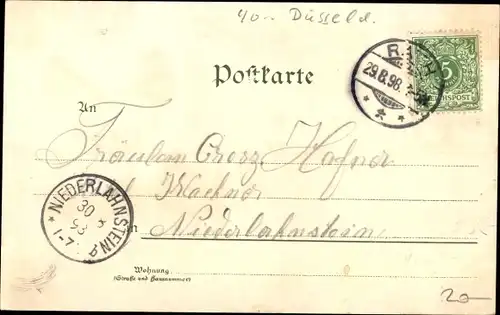 40.- Düsseld.
Postkarte
29.8.98.
5
REICHSPOST
An
Fräulein Hafner
NIEDERLAHNSTEIN
30
8
1-7
in Niederlahnstein
Wohnung
(Straße und Hausnummer)
20.-